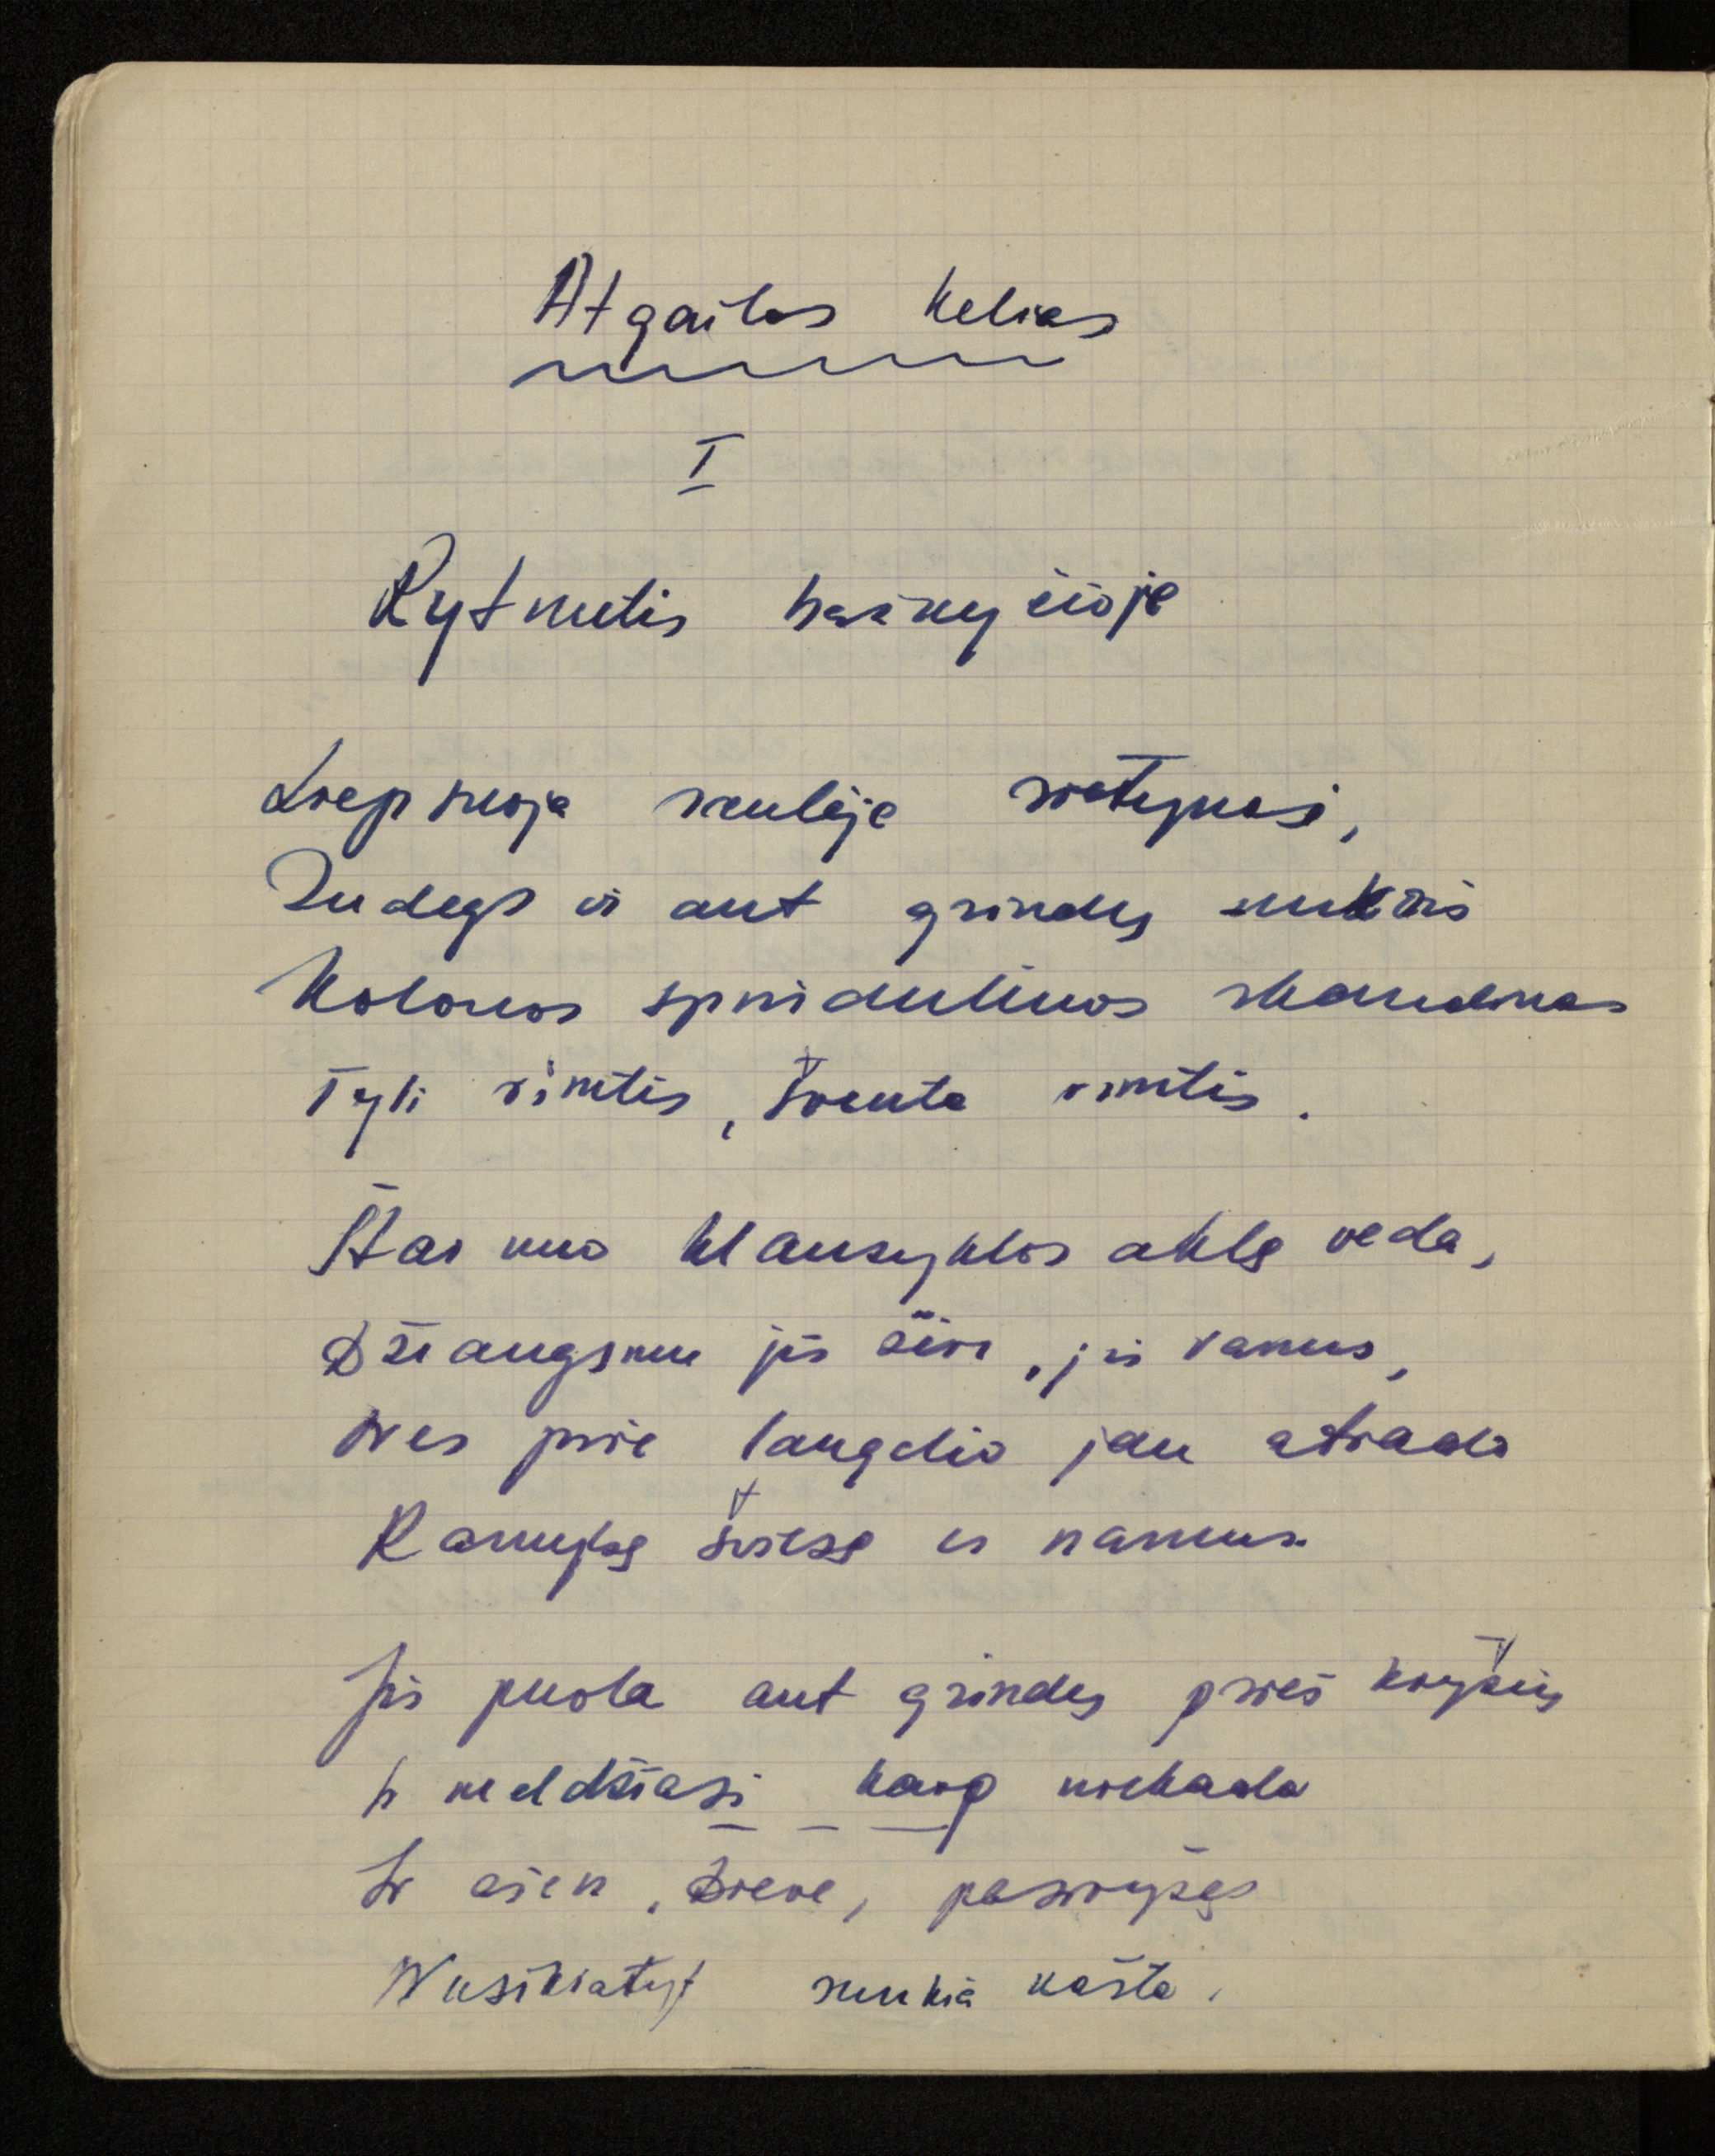 Atgailos kelias
I
Rytmetis bažnyčioje
Liepsnoja saulėje vietynasi,
Sudegs ir ant grindų
Kolonos spinduliuos skandinas
Tyli rimtis, šventa rimtis.
Štai nuo klausyklos aklą veda,
Džiaugsmu jis žėri, jis ramus,
Nes prie langelio jau atrado
Ramybę šviesę ir namus.
Jis puola ant grindų prieš kryžių
Ir meldžiasi kaip niekada
Ir ašen, Dieve, pasiryžęs
Nusikratyt sunkia našta.